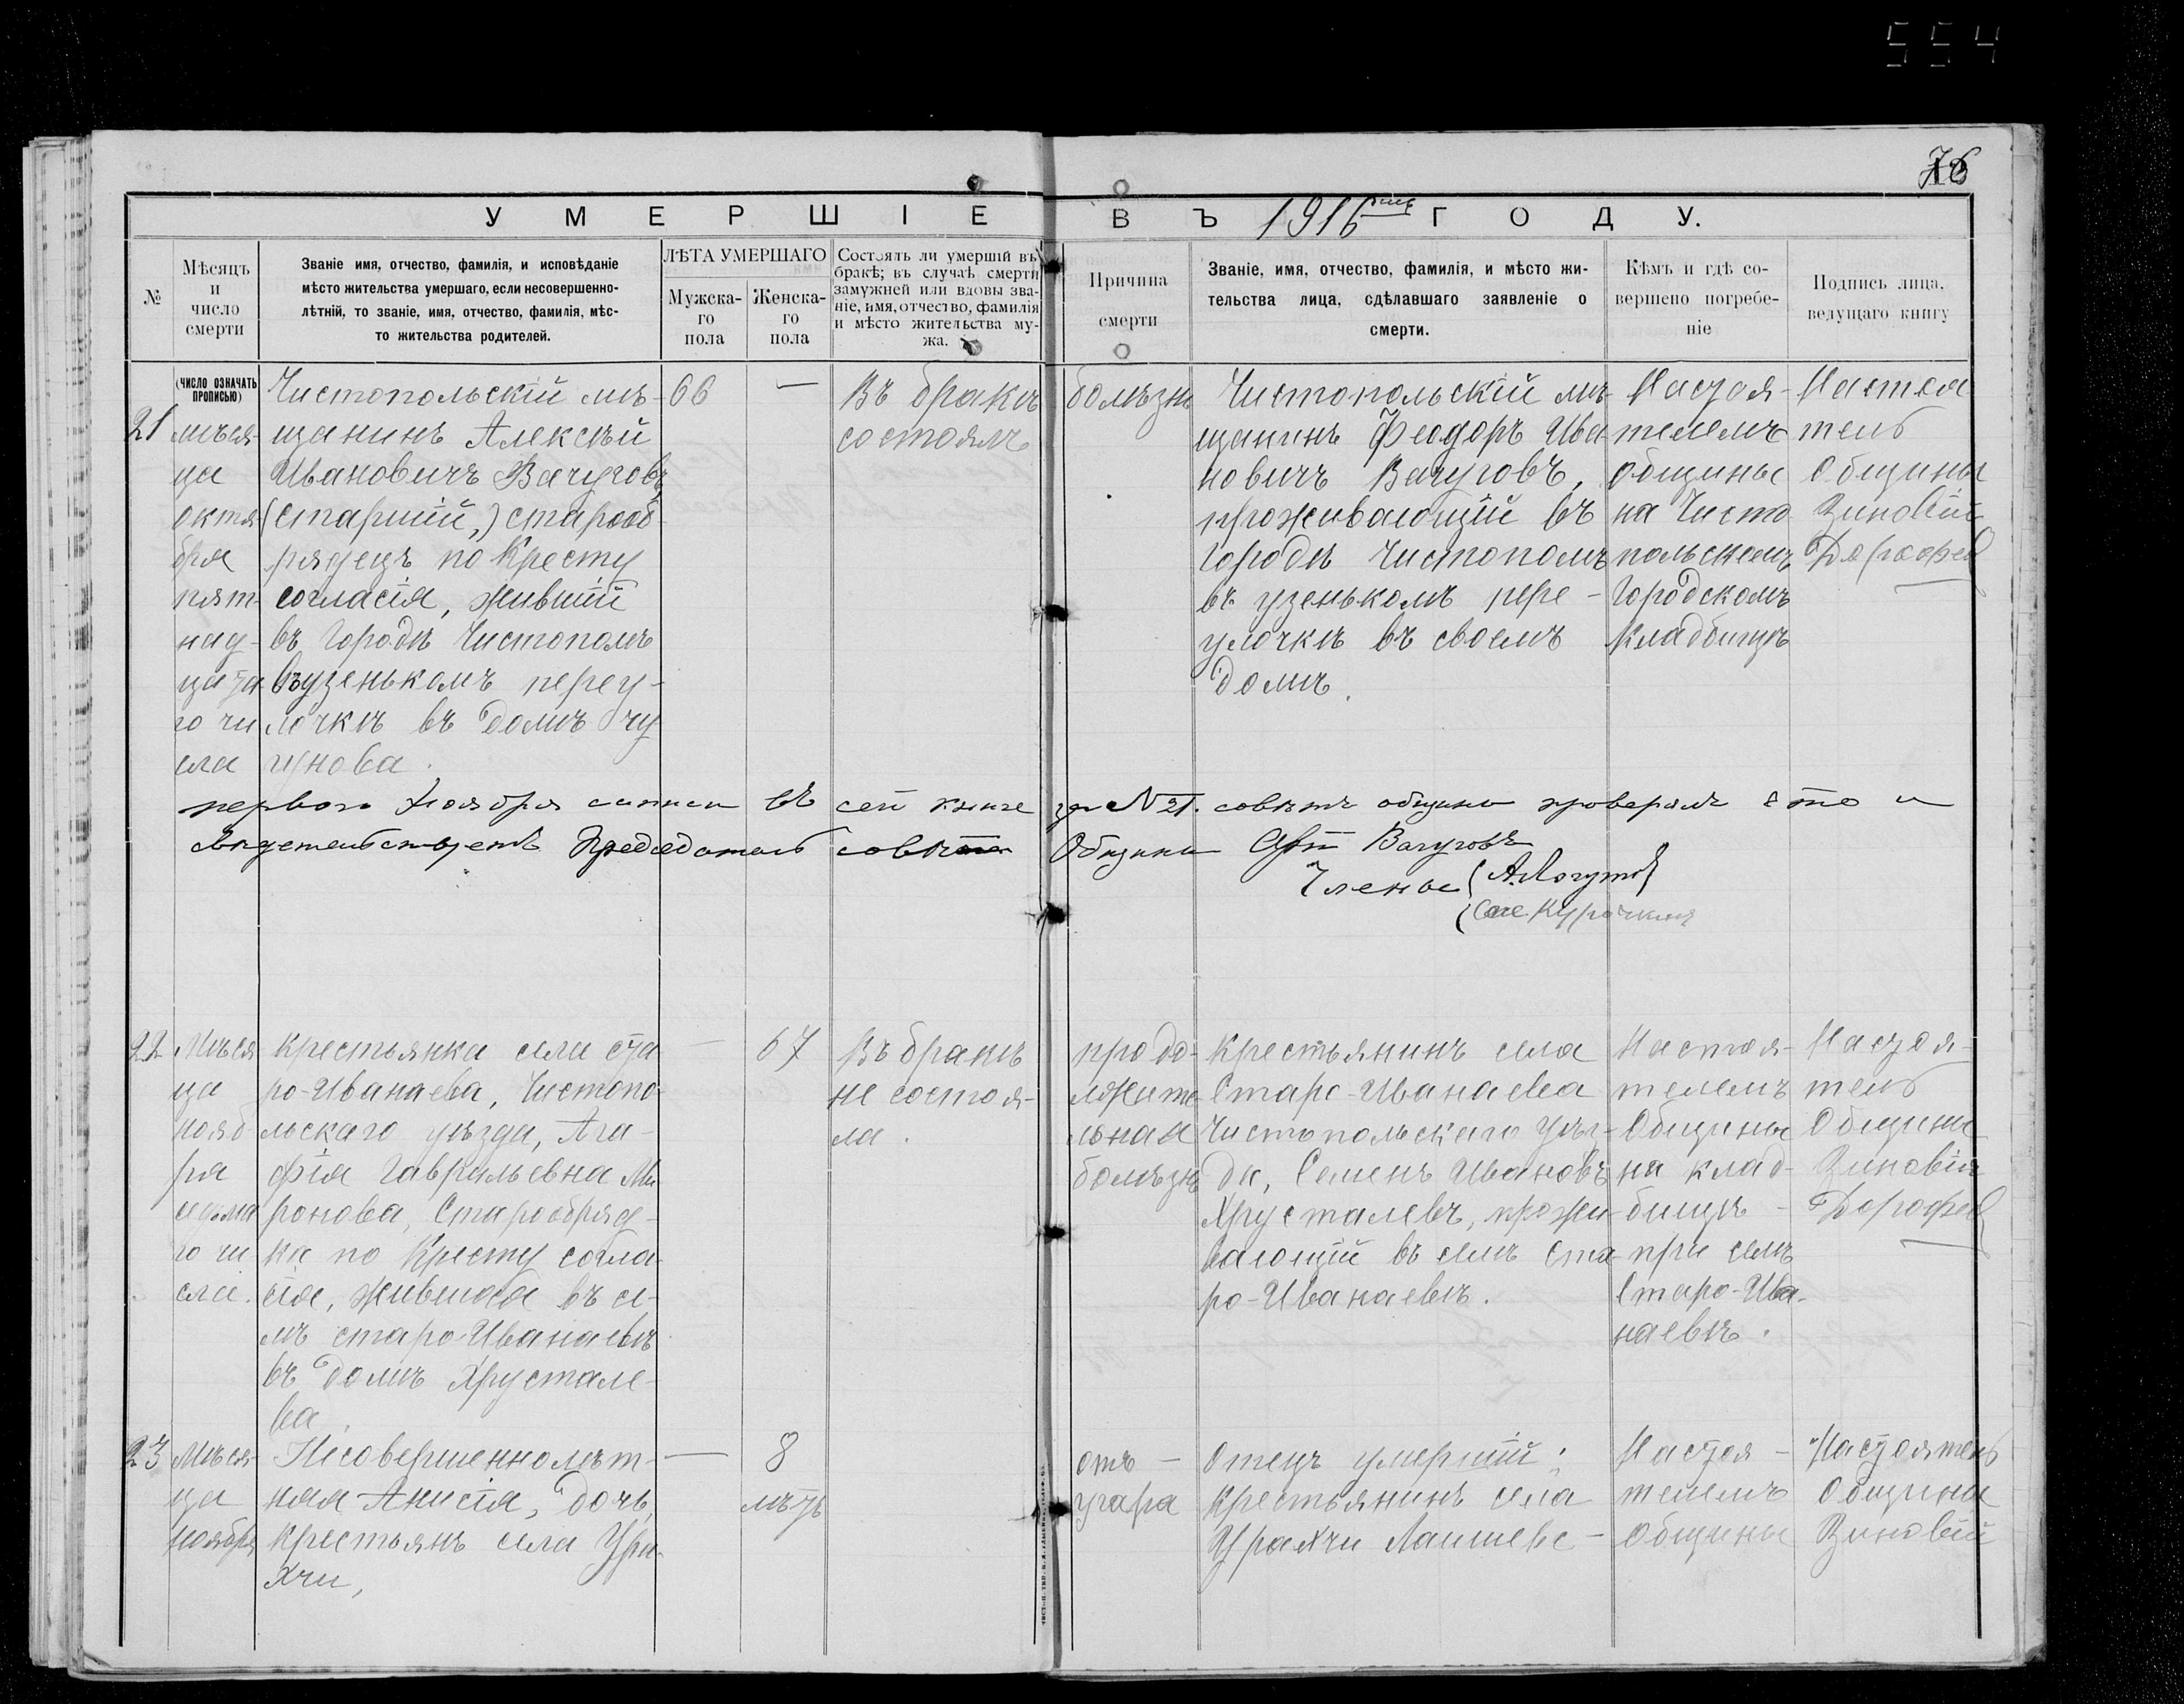 554
76
УМЕРШІЕ ВЪ 1916 ГОДУ.
№
Мѣсяцъ
и
число
смерти
Званіе имя, отчество, фамилія, и исповѣданіе
мѣсто жительства умершаго, если несовершенно-
лѣтній, то званіе, имя, отчество, фамилія, мѣс-
то жительства родителей.
ЛѢТА УМЕРШАГО
Мужска-
го
пола
Женска-
го
пола
Состоялъ ли умершій въ
бракѣ; въ случаѣ смерти
замужней или вдовы зва-
ніе, имя, отчество, фамилія
и мѣсто жительства му-
жа.
Причина
смерти
Званіе, имя, отчество, фамилія, и мѣсто жи-
тельства лица, сдѣлавшаго заявленіе о
смерти.
Кѣмъ и гдѣ со-
вершено погребе-
ніе
Подпись лица,
ведущаго книгу
(ЧИСЛО ОЗНАЧАТЬ
ПРОПИСЬЮ)
21
мѣся-
ца
октя
бря
пят-
над-
цата
го чи
сла
Чистопольскій мѣ-
щанинъ Алексѣй
Ивановичъ Вачуговъ,
(старшій,) старооб-
рядецъ по Кресту
согласія, жившій
въ городѣ Чистополѣ
въ узенькомъ переу-
лочкѣ въ домѣ Чу
гунова.
66
—
Въ бракѣ
состоялъ
болѣзнь
Чистопольскій мѣ-
щанинъ Феодоръ Ива
новичъ Вачуговъ,
проживающій въ
городѣ Чистополѣ
въ узенькомъ пере-
улочкѣ въ своемъ
домѣ.
Настоя-
телемъ
общины
на Чисто
польскомъ
Городскомъ
кладбищѣ
Настоя
тель
Общины
Зиновій
Дорофеев
первого Ноября записи въ сей книге за № 21. совѣтъ общины проверялъ что и
свидетельствуетъ Председатель совѣта Общины Вачуговъ
Члены
Курочкинъ
22
Мѣся
ца
нояб
ря
седьма
го чи
сла.
крестьянка села Ста
ро-Иванаева, Чистопо-
льскаго уѣзда, Ага-
фія Гаврильевна Ми
ронова, Старообряд-
ка по Кресту согла
сія, жившая въ се-
лѣ старо-Иванаевѣ
въ домѣ Хрустале-
ва.
—
67
Въ бракѣ
не состоя-
ла.
продо-
лжите
льная
болѣзнь
Крестьянинъ села
Старо-Иванаева
Чистопольскаго уѣз-
да, Семенъ Ивановъ
Хрусталевъ, прожи-
вающій въ селѣ Ста
ро-Иванаевѣ.
Настоя-
телемъ
Общины
на клад-
бищѣ -
при селѣ
Старо-Ива-
наевѣ.
Настоя-
тель
Общины
Зиновій
Дорофеев
23
Мѣся-
ца
ноября
Несовершеннолѣт-
няя Анисія, дочь
крестьянъ села Ура-
хчи,
—
8
лѣтъ
отъ -
угара
Отецъ умершій:
Крестьянинъ села
Урахчи Лаишевс-
Настоя-
телемъ
Общины
Настоятель
Общины
Зиновій